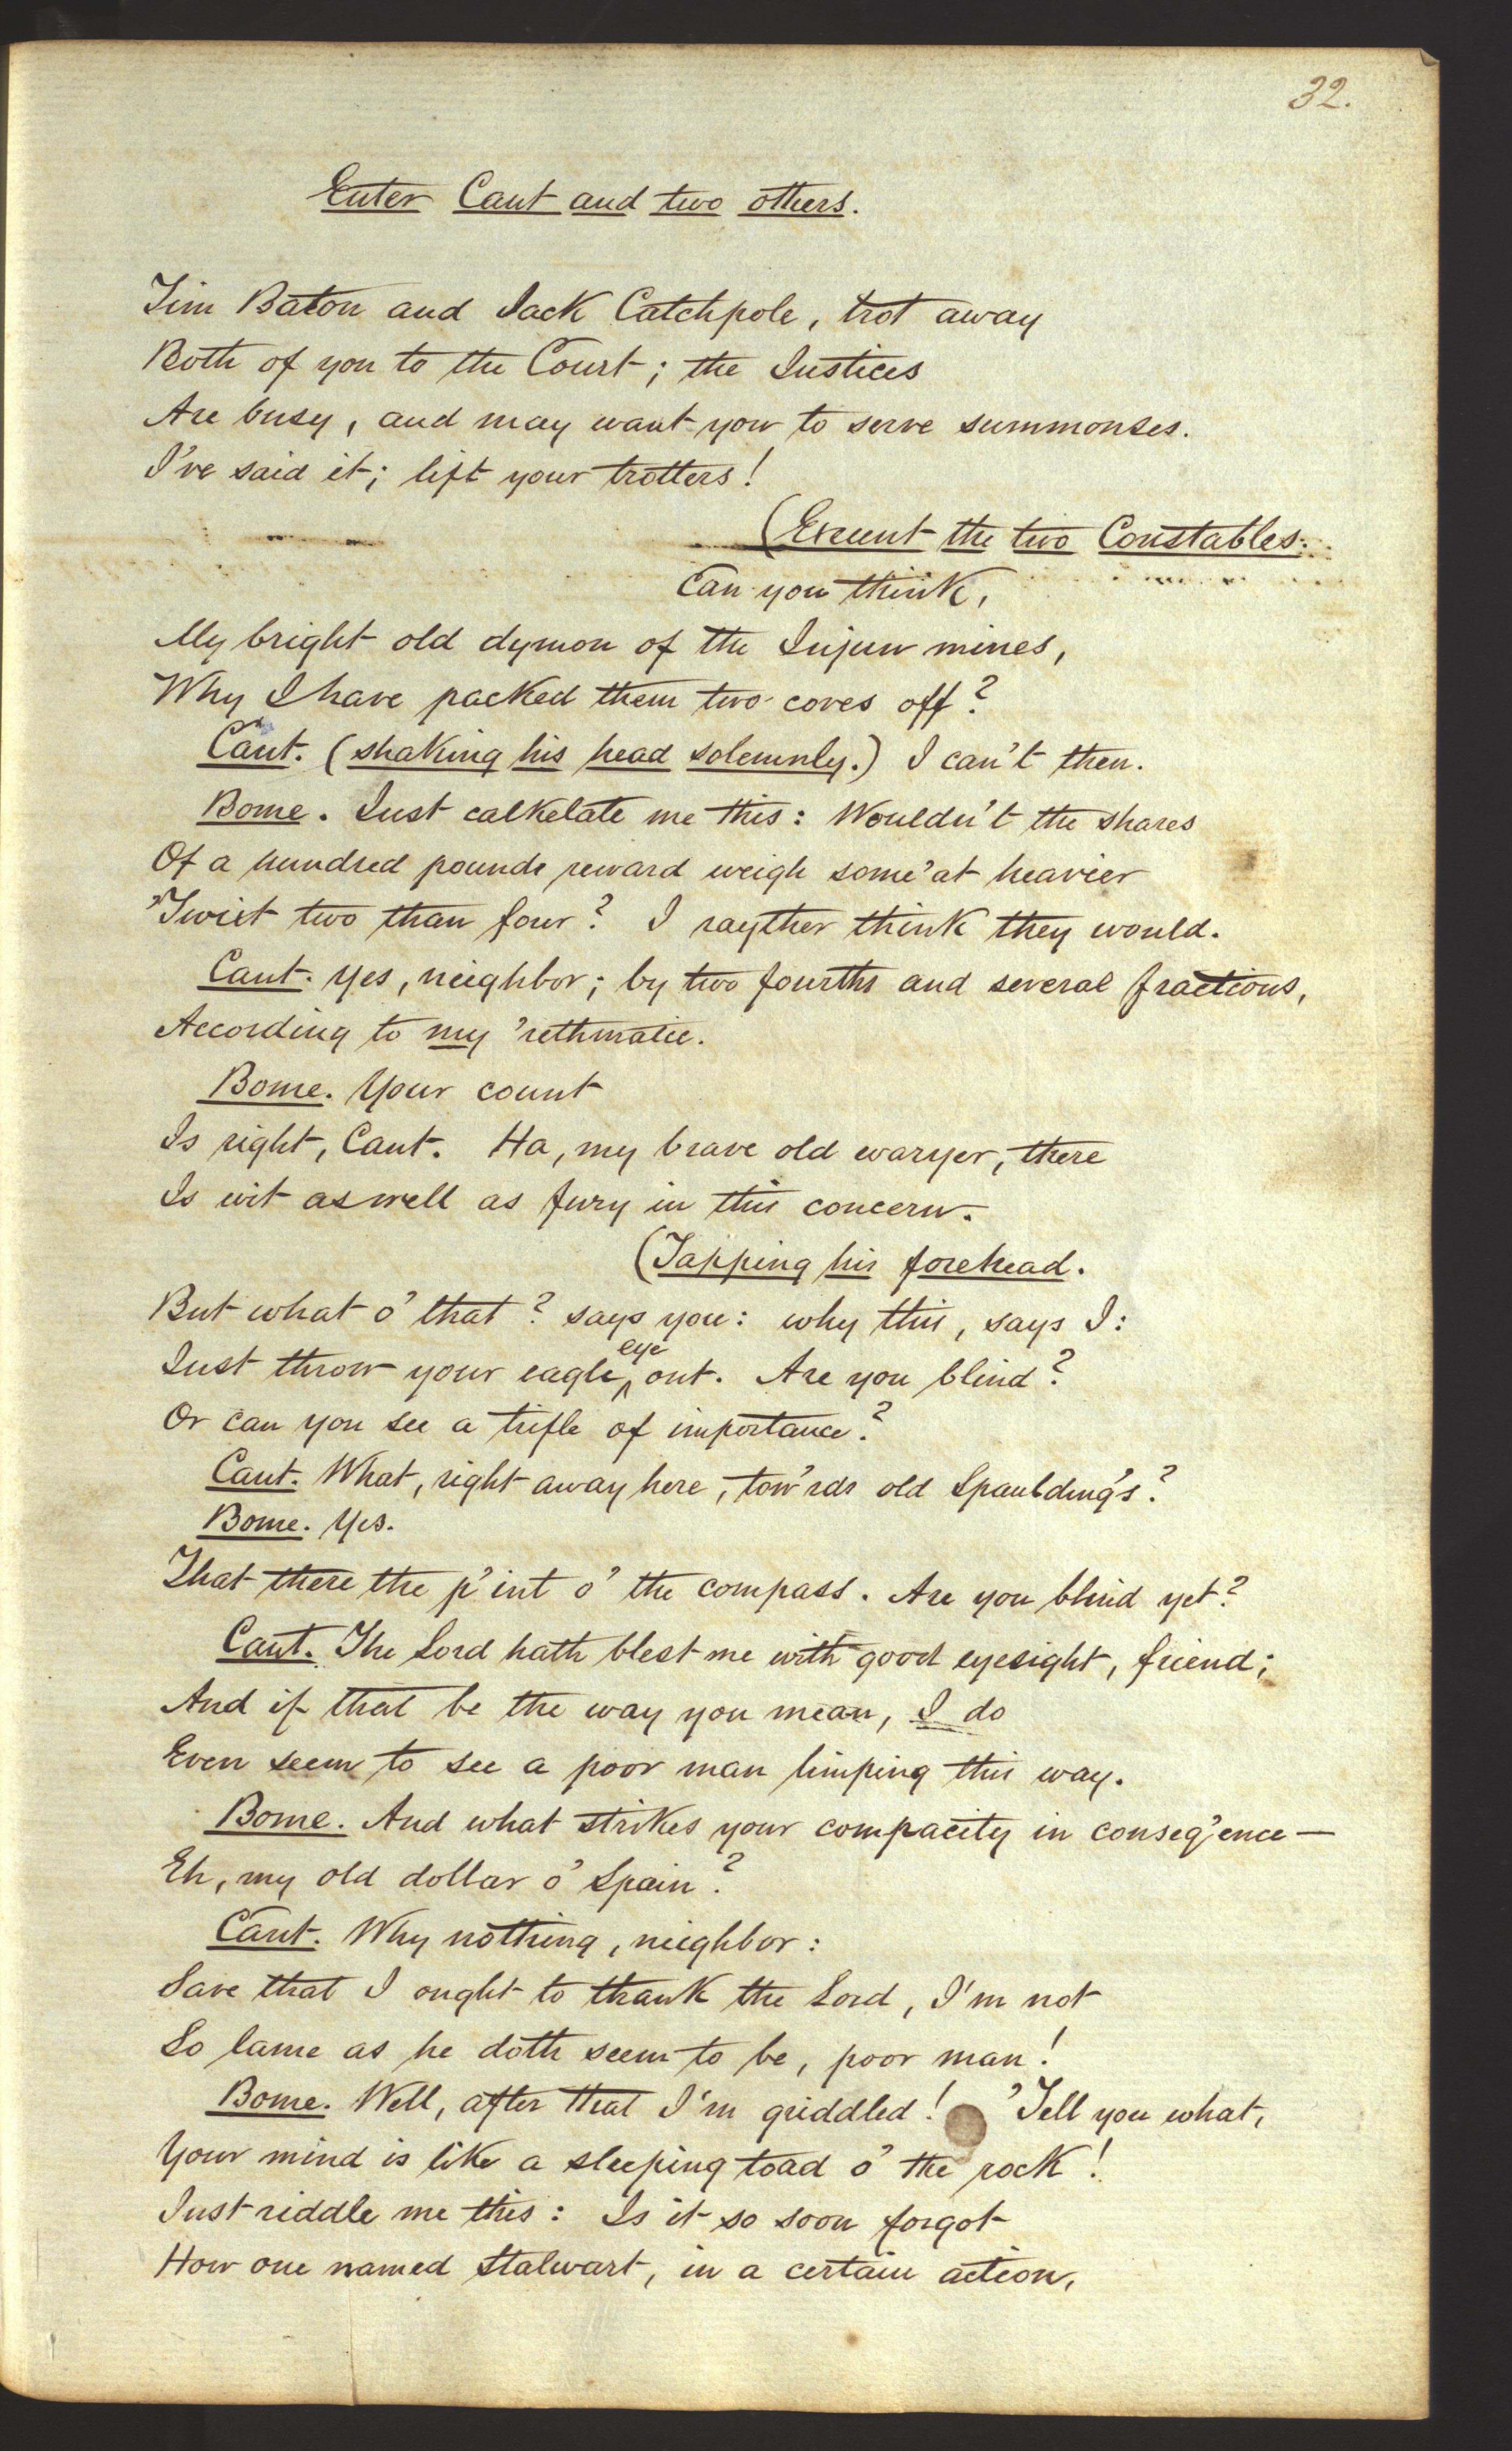 32.
Enter Cant and two others.
Tim Baton and Jack Catchpole, trot away
Both of you to the Court; the Justices
Are busy, and may want you to serve summonses.
I've said it; lift your trotters!
(Exeunt the two Constables.
Can you think,
My bright old dymon of the Injun mines,
Why I have packed them two coves off?
Cant. (shaking his head solemnly.) I can't then.
Bome. Just calkelate me this: Wouldn't the shares
Of a hundred pounds reward weigh some'at heavier
'Twixt two than four? I rayther think they would.
Cant. Yes, neighbor; by two fourths and several fractions,
According to my 'rethmatic.
Bome. Your count
Is right, Cant. Ha, my brave old waryer, there
Is wit as well as fury in this concern.
(Tapping his forehead.
But what o' that? says you: why this, says I:
Just throw your eagle eye out. Are you blind?
Or can you see a trifle of importance?
Cant. What, right away here, tow'rds old Spaulding's?
Bome. Yes.
That there the p'int o' the compass. Are you blind yet?
Cant. The Lord hath blest me with good eyesight, friend;
And if that be the way you mean, I do
Even seem to see a poor man limping this way.
Bome. And what strikes your compacity in conseq'ence —
Eh, my old dollar o' Spain?
Cant. Why nothing, neighbor:
Save that I ought to thank the Lord, I'm not
So lame as he doth seem to be, poor man!
Bome. Well, after that I'm griddled! 'Tell you what,
Your mind is like a sleeping toad o' the rock!
Just riddle me this: Is it so soon forgot
How one named Stalwart, in a certain action,